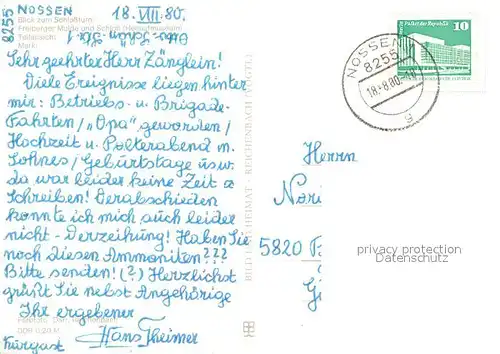 8255 NOSSEN 18. VIII. 80.
Blick zum Schloßturm
Freiberger Mulde und Schloß (Heimatmuseum)
Teilansicht
Markt
Sehr geehrter Herr Zänglein!
Viele Ereignisse liegen hinter
mir: Betriebs- u. Brigade-
Fahrten/ „Opa" geworden/
Hochzeit u. Polterabend m.
Sohnes/ Geburtstage usw.
da war leider keine Zeit z.
Schreiben! Verabschieden
konnte ich mich auch leider
nicht - Verzeihung! Haben Sie
noch Diesen Ammoniten???
Bitte senden! (?) Herzlichst
grüßt Sie nebst Angehörige
Ihr ergebener
Hans Theimer
Kurgast
BILD UND HEIMAT REICHENBACH (VOGTL)
NOSSEN
8255
18.-8.80.-10
a
Palast der Republik
10
Herrn
Nori
5820
privacy protection
Datenschutz